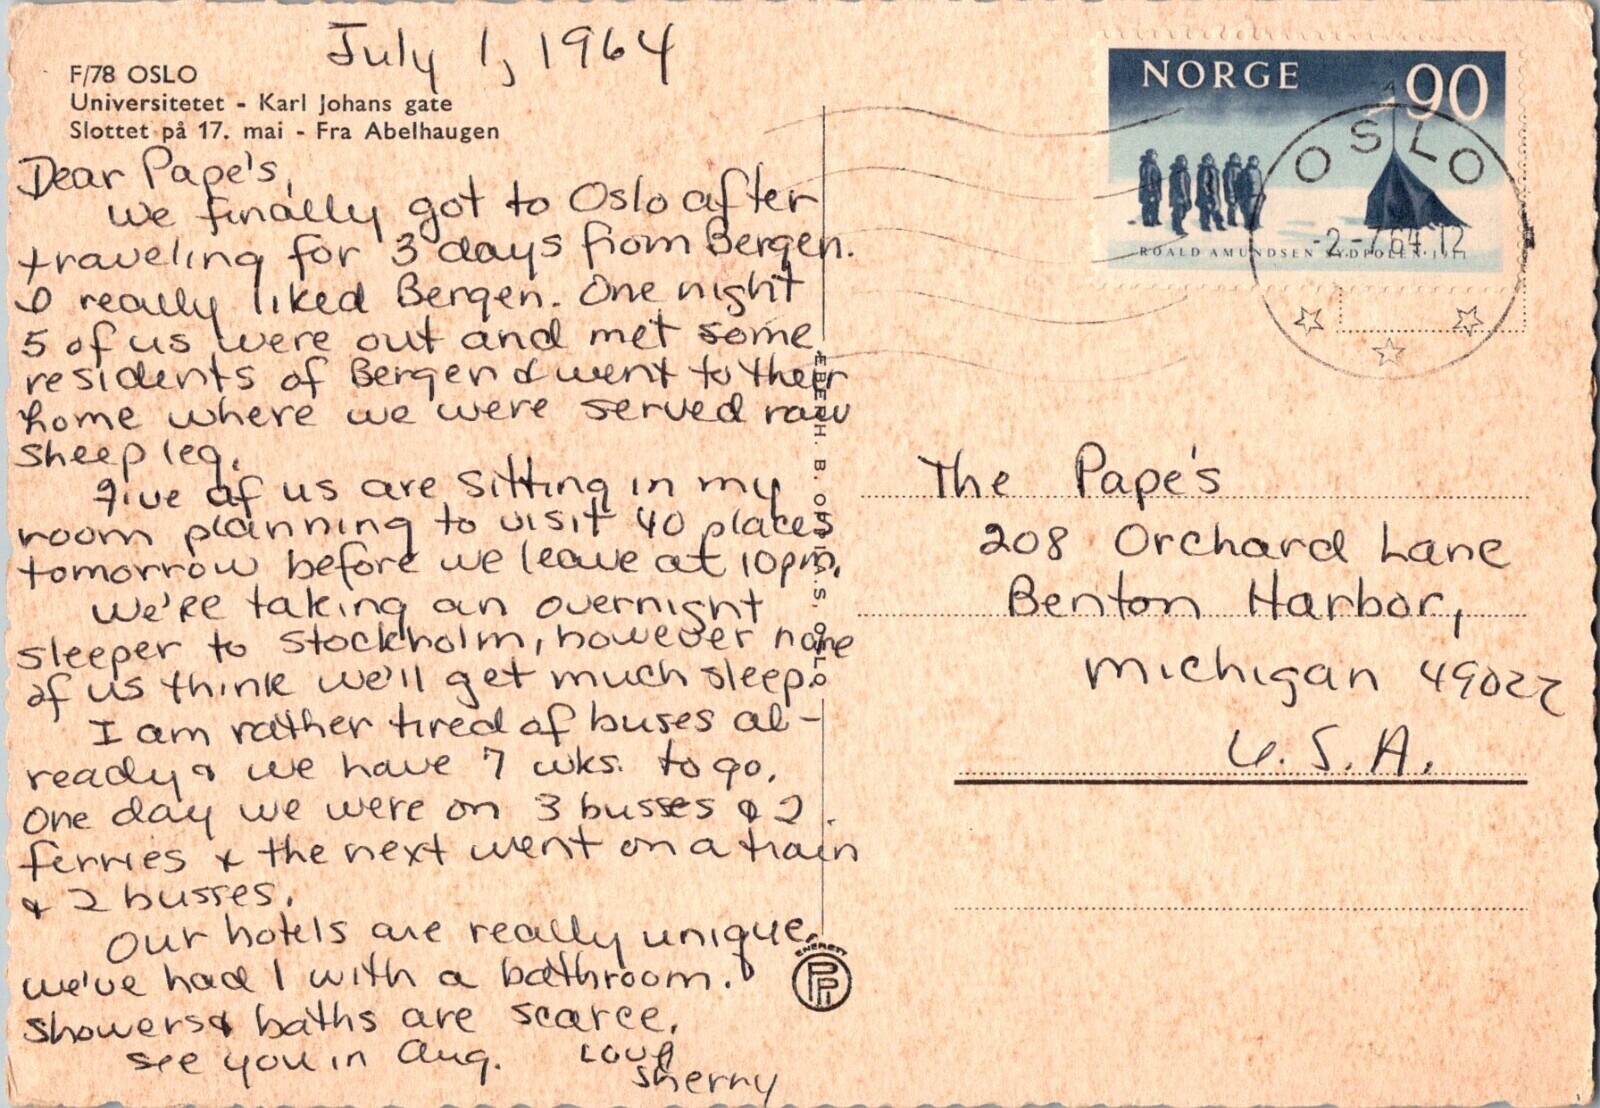 July 1, 1964
F/78 OSLO
Universitetet - Karl Johans gate
Slottet på 17. mai - Fra Abelhaugen
Dear Pape's,
We finally got to Oslo after
traveling for 3 days from Bergen.
I really liked Bergen. One night
5 of us were out and met some
residents of Bergen & went to their
home where we were served raw
sheep leg.
Five of us are sitting in my
room planning to visit 40 places
tomorrow before we leave at 10pm.
We're taking an overnight
sleeper to Stockholm, however none
of us think we'll get much sleep.
I am rather tired of buses al-
ready & we have 7 wks. to go.
One day we were on 3 busses & 2
ferries & the next went on a train
& 2 busses.
Our hotels are really unique.
we've had 1 with a bathroom.
Showers & baths are scarce.
See you in Aug. Love
Sherry
ENERETT
NORGE 90
ROALD AMUNDSEN SYDPOLEN 1911
OSLO
-2.-7.64.12
The Pape's
208 Orchard Lane
Benton Harbor,
Michigan 49022
U.S.A.